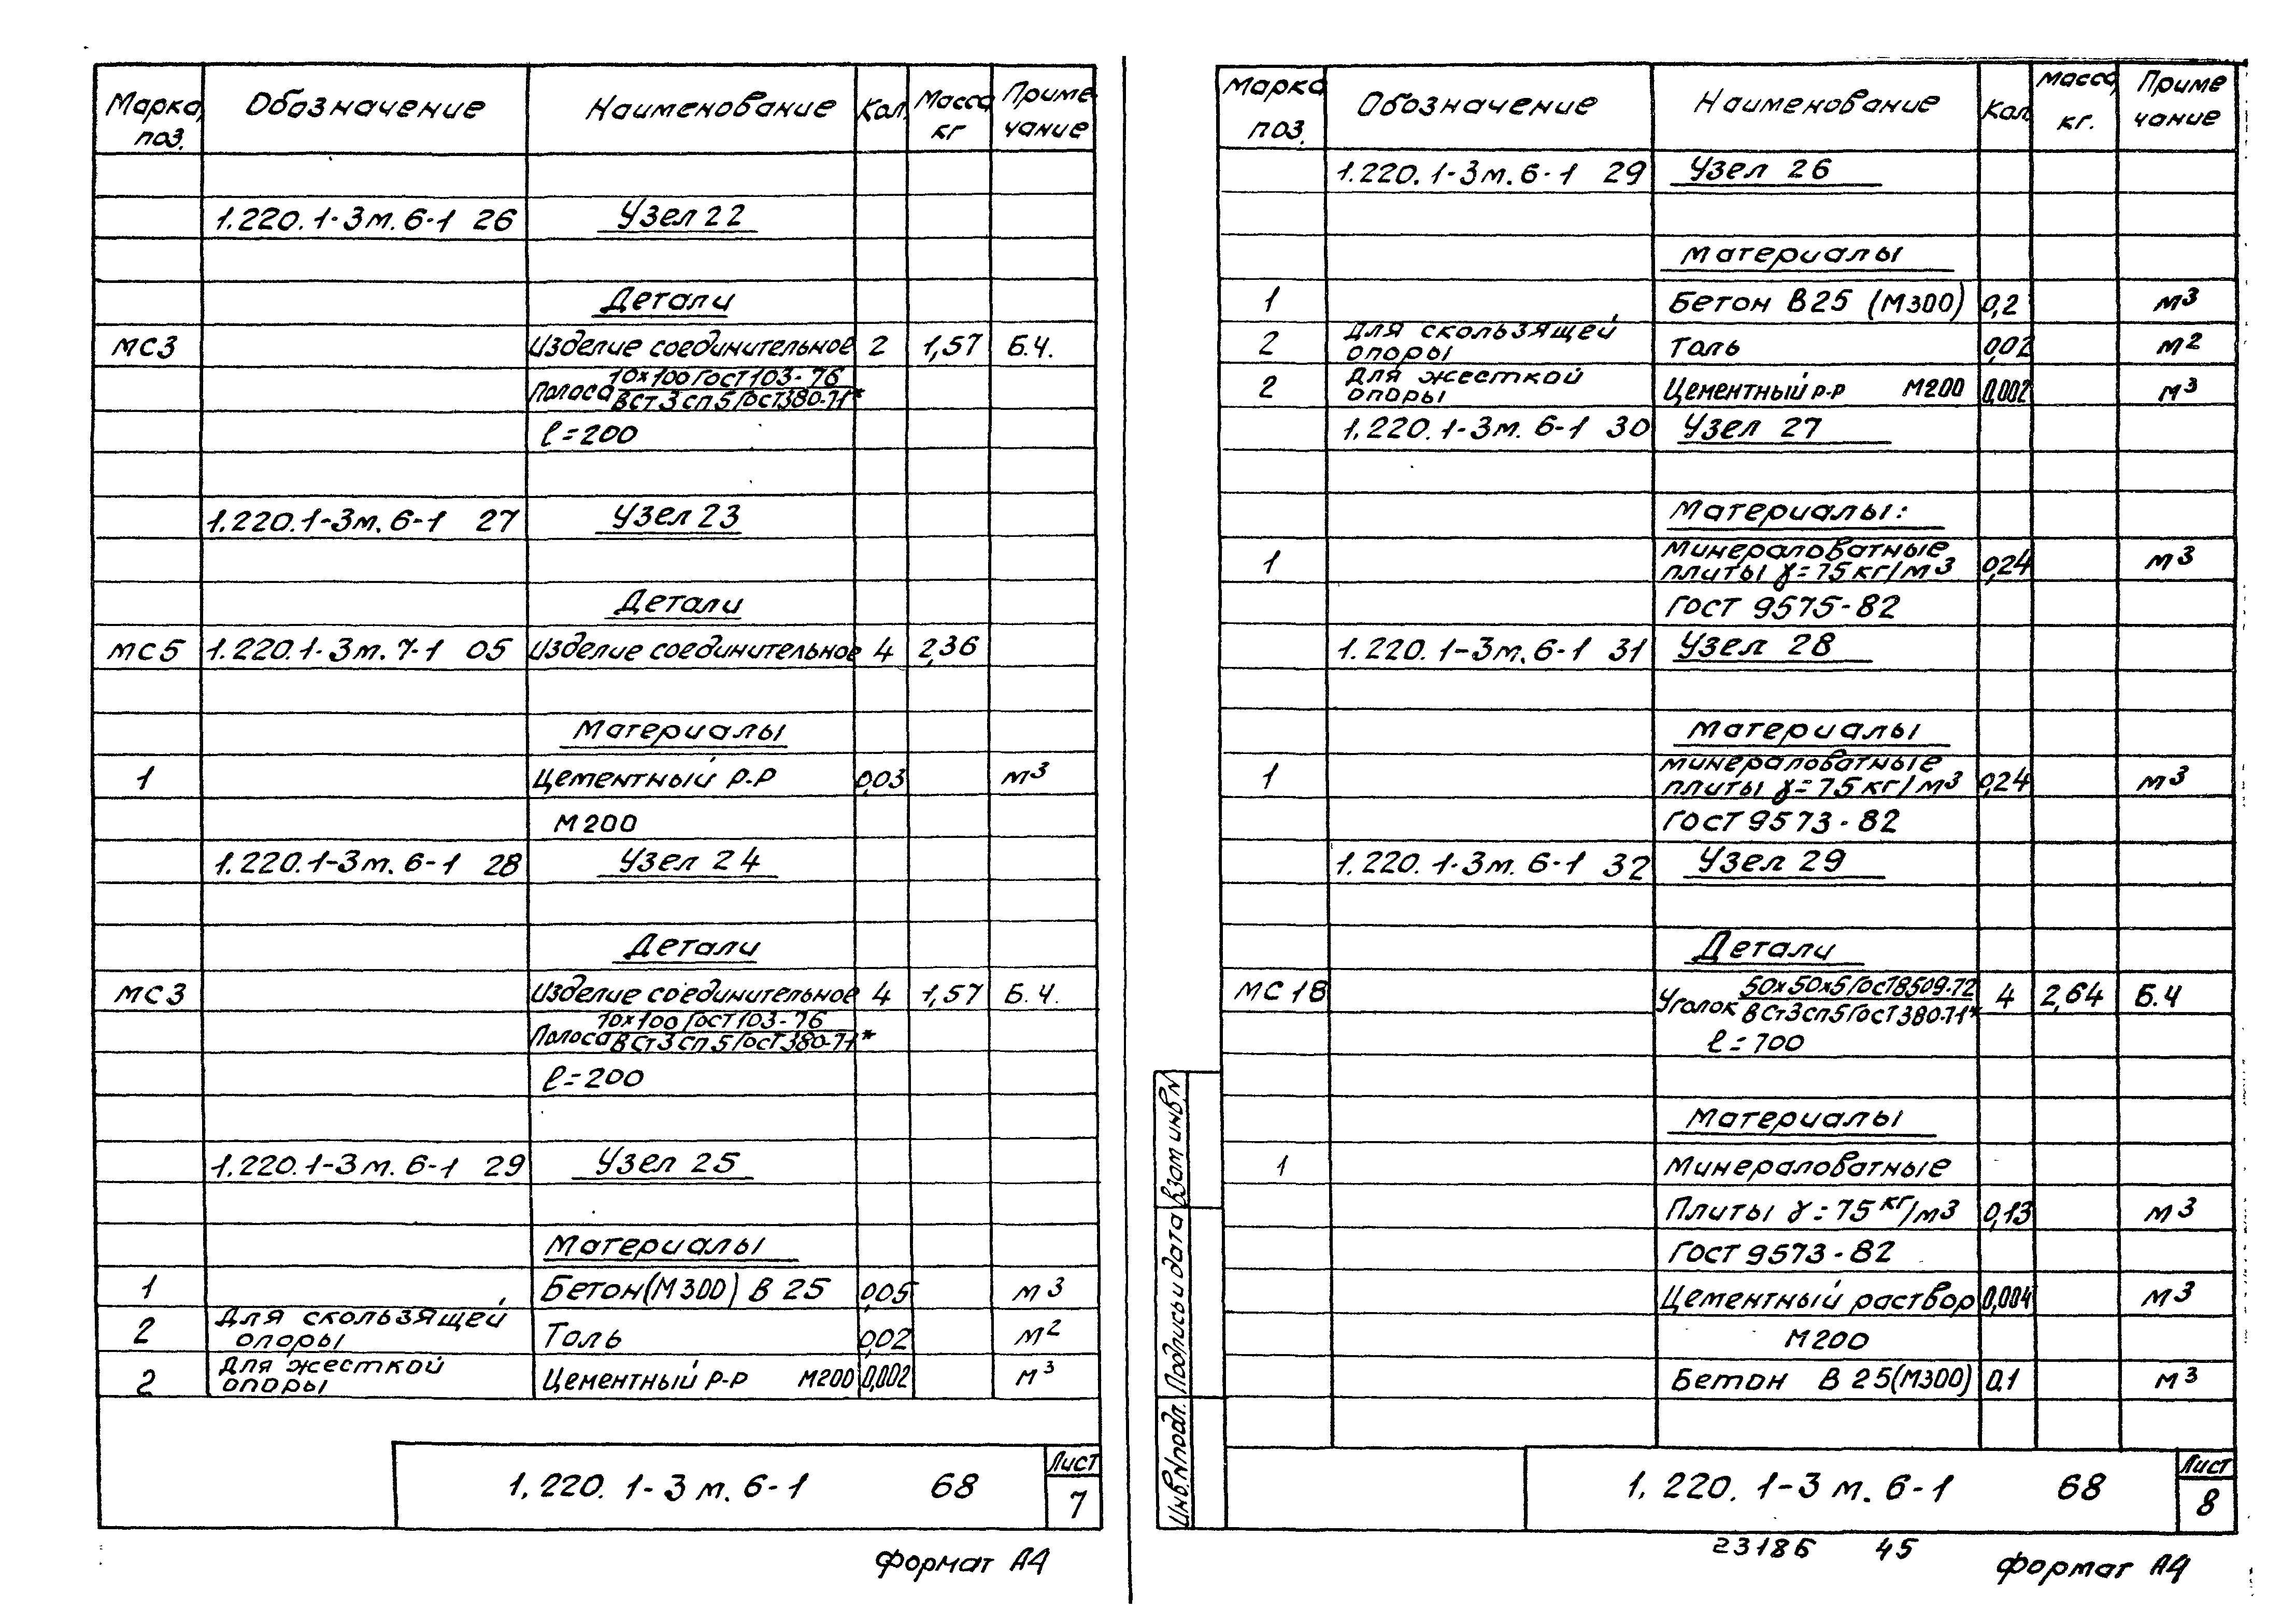 Марка, поз. Обозначение Наименование Кол. Масса кг Приме чание
1.220.1-3м.6-1 26 Узел 22
Детали
МС3 Изделие соединительное 2 1,57 Б.Ч.
Полоса 10х100 ГОСТ 103-76
ВСт3сп5 ГОСТ 380-71*
ℓ=200
1.220.1-3м.6-1 27 Узел 23
Детали
МС5 1.220.1-3м.7-1 05 Изделие соединительное 4 2,36
Материалы
1 Цементный р-р 0,03 м3
М200
1.220.1-3м.6-1 28 Узел 24
Детали
МС3 Изделие соединительное 4 1,57 Б.Ч.
Полоса 10х100 ГОСТ 103-76
ВСт3сп5 ГОСТ 380-71*
ℓ=200
1.220.1-3м.6-1 29 Узел 25
Материалы
1 Бетон (М300) В 25 0,05 м3
2 Для скользящей опоры Толь 0,02 м2
2 Для жесткой опоры Цементный р-р М200 0,002 м3
1.220.1-3м.6-1 68
Лист
7
Формат А4
Марка поз. Обозначение Наименование Кол. Масса, кг. Приме чание
1.220.1-3м.6-1 29 Узел 26
Материалы
1 Бетон В25 (М300) 0,2 м3
2 Для скользящей опоры Толь 0,02 м2
2 Для жесткой опоры Цементный р-р М200 0,002 м3
1.220.1-3м.6-1 30 Узел 27
Материалы:
1 Минераловатные
плиты γ=75кг/м3 0,24 м3
ГОСТ 9575-82
1.220.1-3м.6-1 31 Узел 28
Материалы
1 Минераловатные
плиты γ=75кг/м3 0,24 м3
ГОСТ 9573-82
1.220.1-3м.6-1 32 Узел 29
Детали
МС18 Уголок 50х50х5 ГОСТ 8509-72 4 2,64 Б.Ч
ВСт3сп5 ГОСТ 380-71*
ℓ=700
Материалы
1 Минераловатные
Плиты γ=75 кг/м3 0,13 м3
ГОСТ 9573-82
Цементный раствор 0,004 м3
М200
Бетон В 25(М300) 0,1 м3
Взам инв.N
Подпись и дата
Инв.Nподл.
1.220.1-3м.6-1 68
Лист
8
23186 45
Формат А4